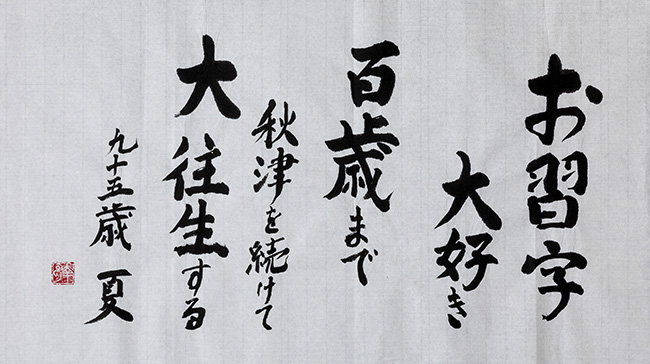 お習字
大好き
百歳まで
秋津を続けて
大往生する
九十五歳 夏